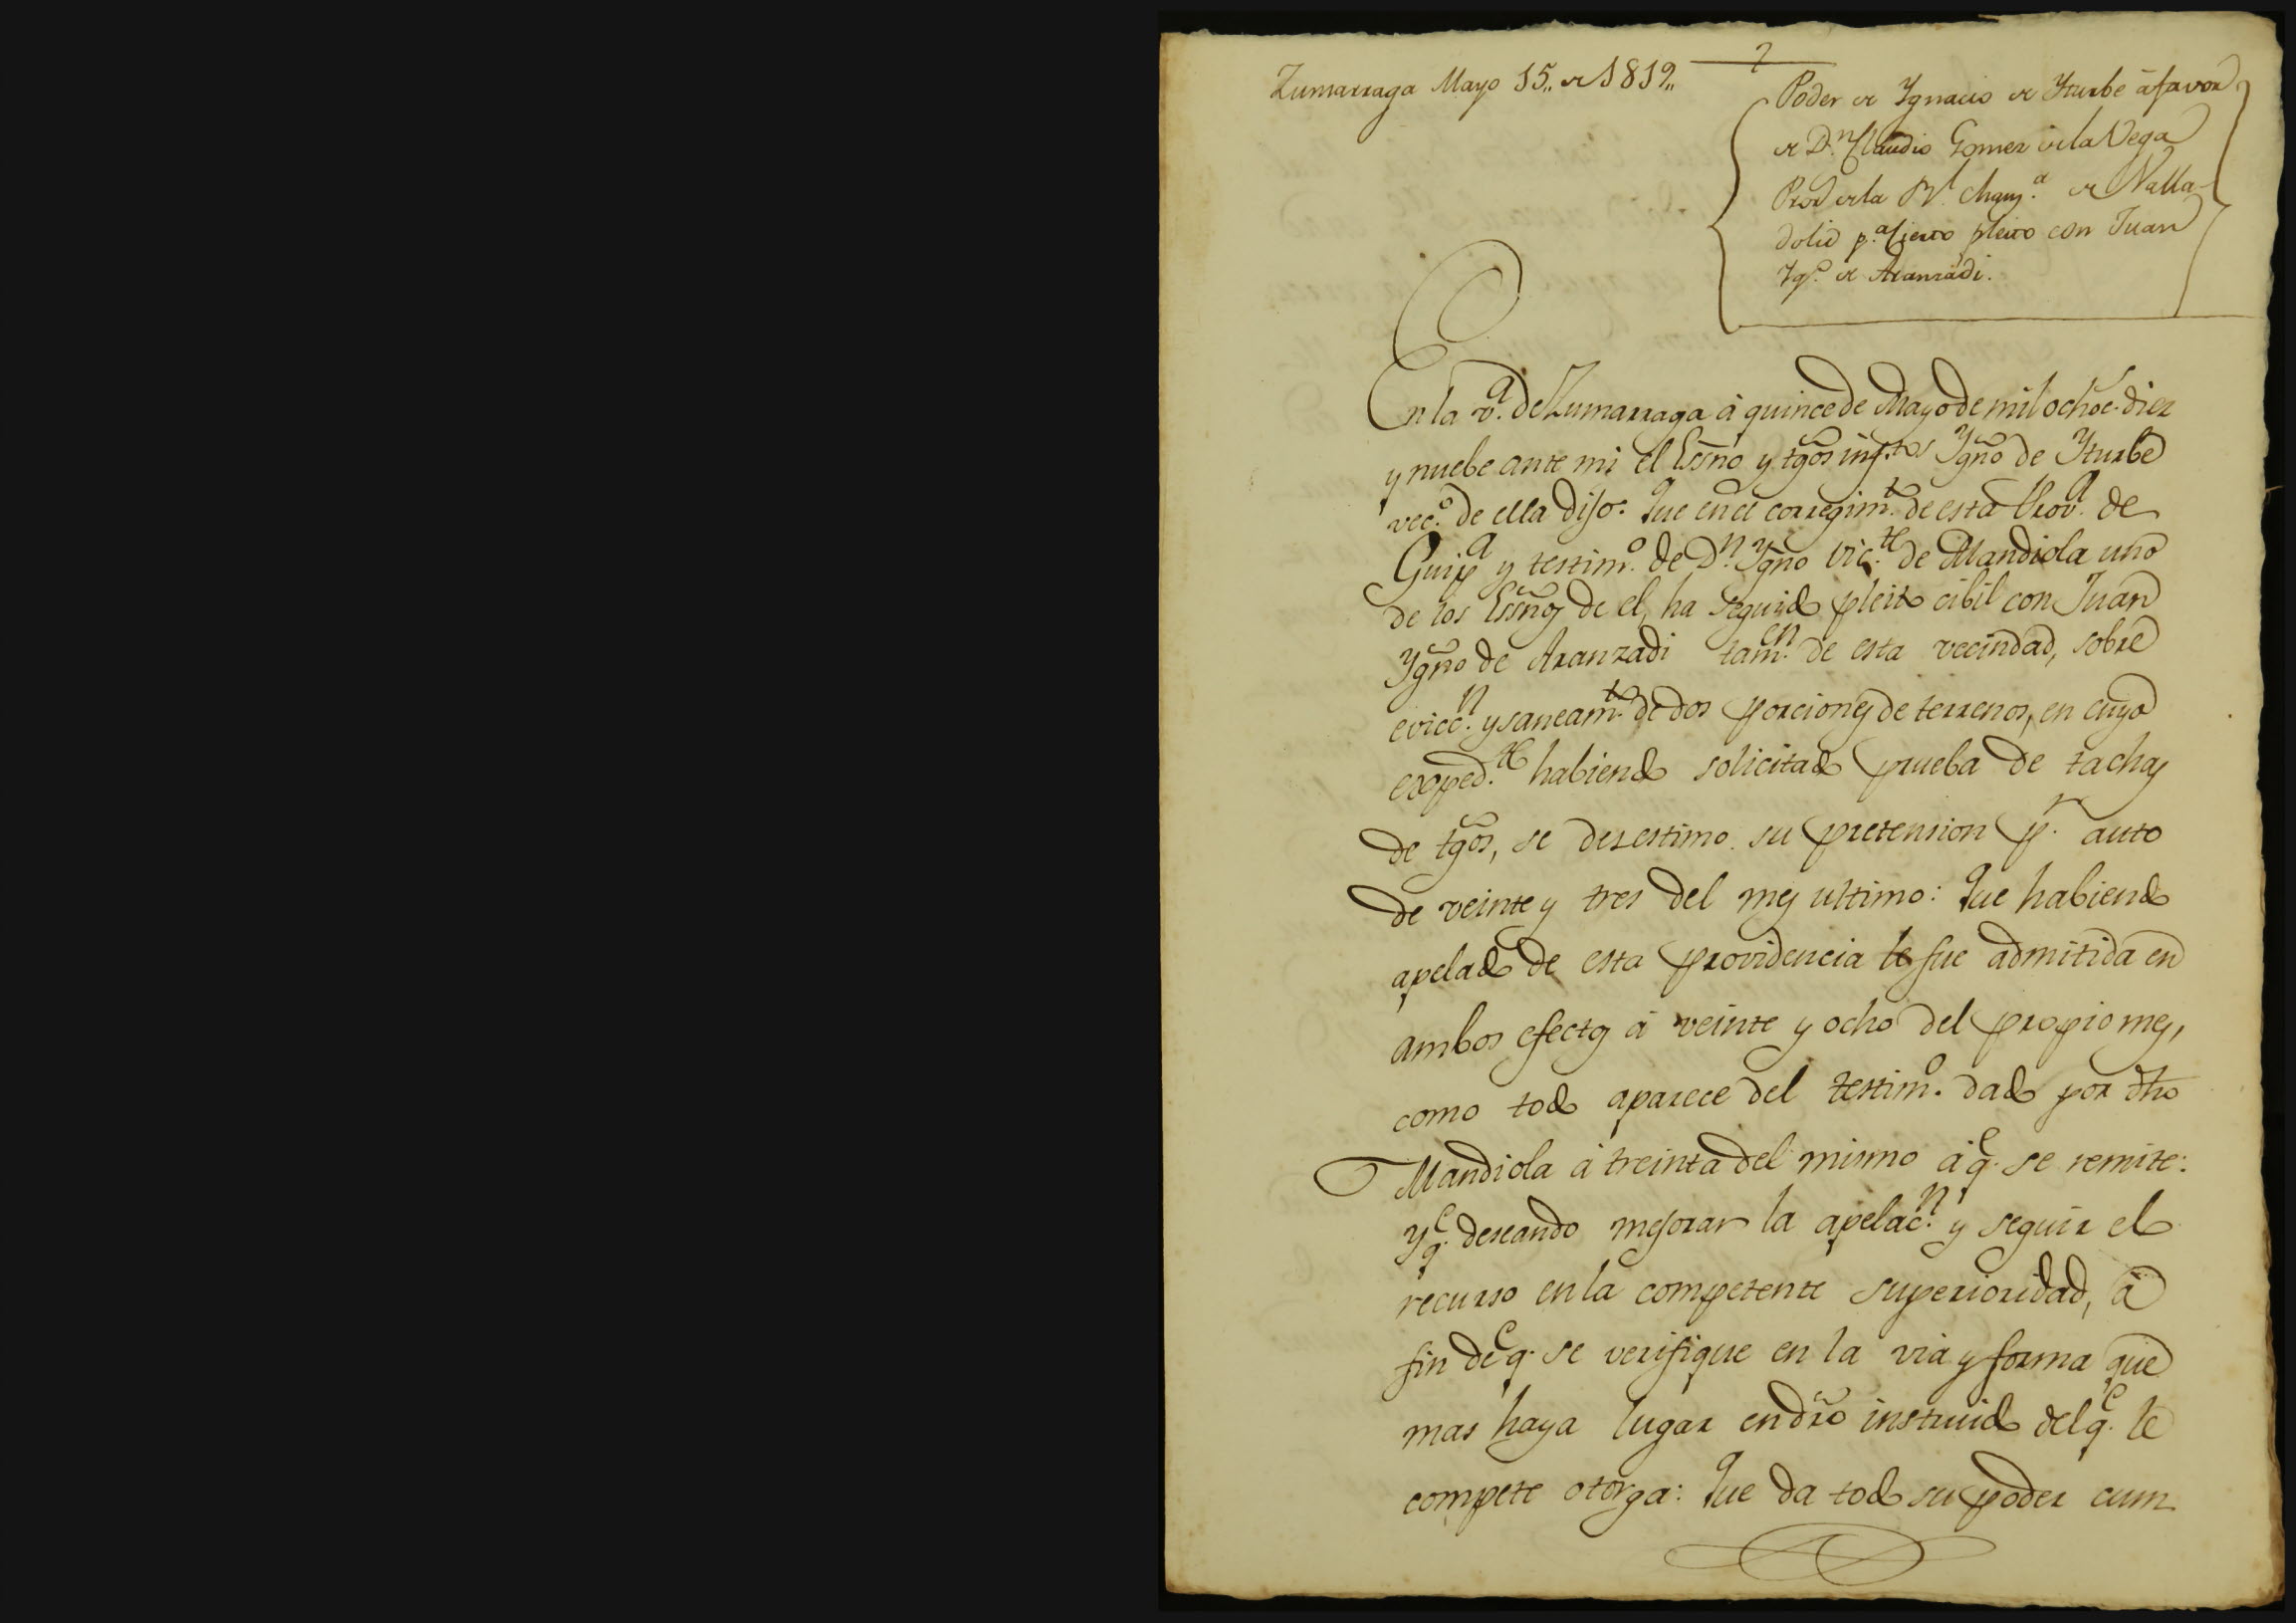 Zumarraga Mayo 15,, de 1819,,
2
Poder de Ygnacio de Yturbe á favor
de Dn. Claudio Gomez de la Vega
Pror de la Rl. Chanz.a de Valla-
dolid p.a Cierto pleito con Juan
Ygo. de Aranzadi.
En la v.a de Zumarraga á quince de Mayo de mil ochoc. diez
y nuebe ante mi el Essno y tgos inf.tos Ygno de Yturbe
vec.o de ella dijo: Que en el corregim.to de esta Prov.a de
Guip.a y testim.o de D.n Ygno Vic.te de Mandiola uno
de los Essnos de el, ha seguido pleito cibil con Juan
Ygno de Aranzadi tam.en de esta vecindad, sobre
evicc.n y saneam.to de dos porciones de terrenos, en cuyo
exped.te habiendo solicitado prueba de tachas
de tgos, se desestimo su pretension p.r auto
de veinte y tres del mes ultimo: Que habiendo
apelado de esta providencia le fue admitida en
ambos efectos á veinte y ocho del propio mes,
como todo aparece del testim.o dado por dho
Mandiola á treinta del mismo á q.e se remite:
Y q.e deseando mejorar la apelac.n y seguir el
recurso en la competente superioridad, á
fin de q.e se verifique en la via y forma que
mas haya lugar en dro instruido del q.e le
compete otorga: Que da todo su poder cum